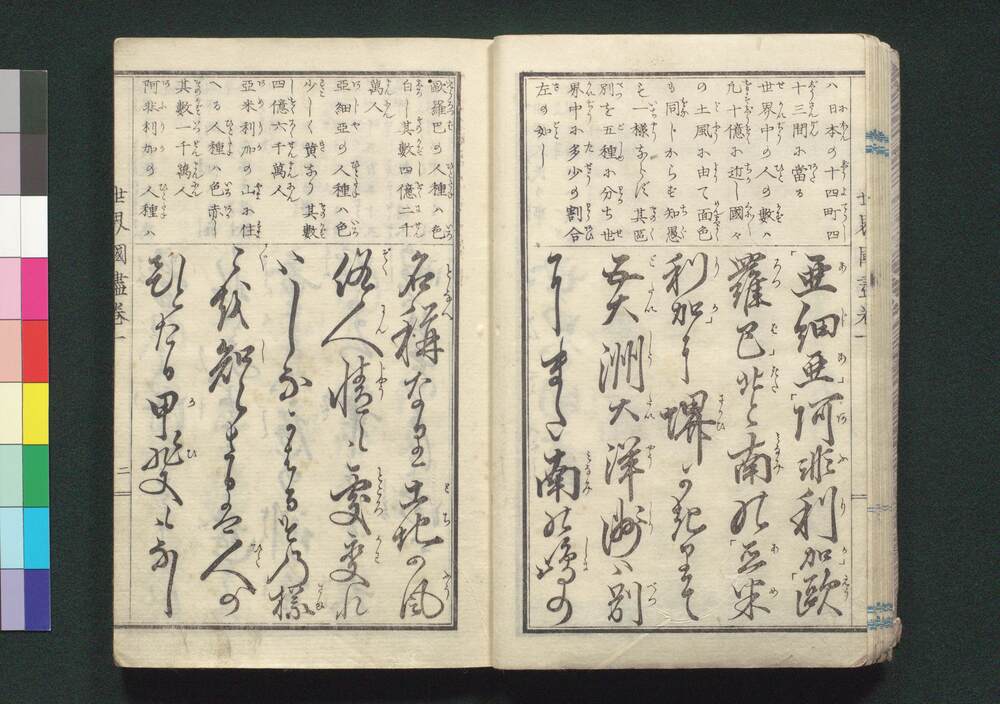 ハ日本の十四町四
十三間に當る
世界中の人の數ハ
凡十億に近し國々
の土風に由て面色
も同じからず知愚
も一樣ならず其區
別を五種に分ち世
界中に多少の割合
左の如し
亜細亜阿非利加歐
羅巴北と南の亜米
利加に堺かぎりて
五大洲大洋洲ハ別
にまた南の島の
世界國盡卷一
歐羅巴の人種ハ色
白し其數四億二千
萬人
亜細亜の人種ハ色
少しく黄なり其數
四億六千萬人
亜米利加の山に住
へる人種ハ色赤し
其數一千萬人
阿非利加の人種ハ
名稱なり土地の風
俗人情も處變れ
バしなかはるその樣
々を知らざるは人の
ひとたる甲斐もなし
世界國盡卷一
二